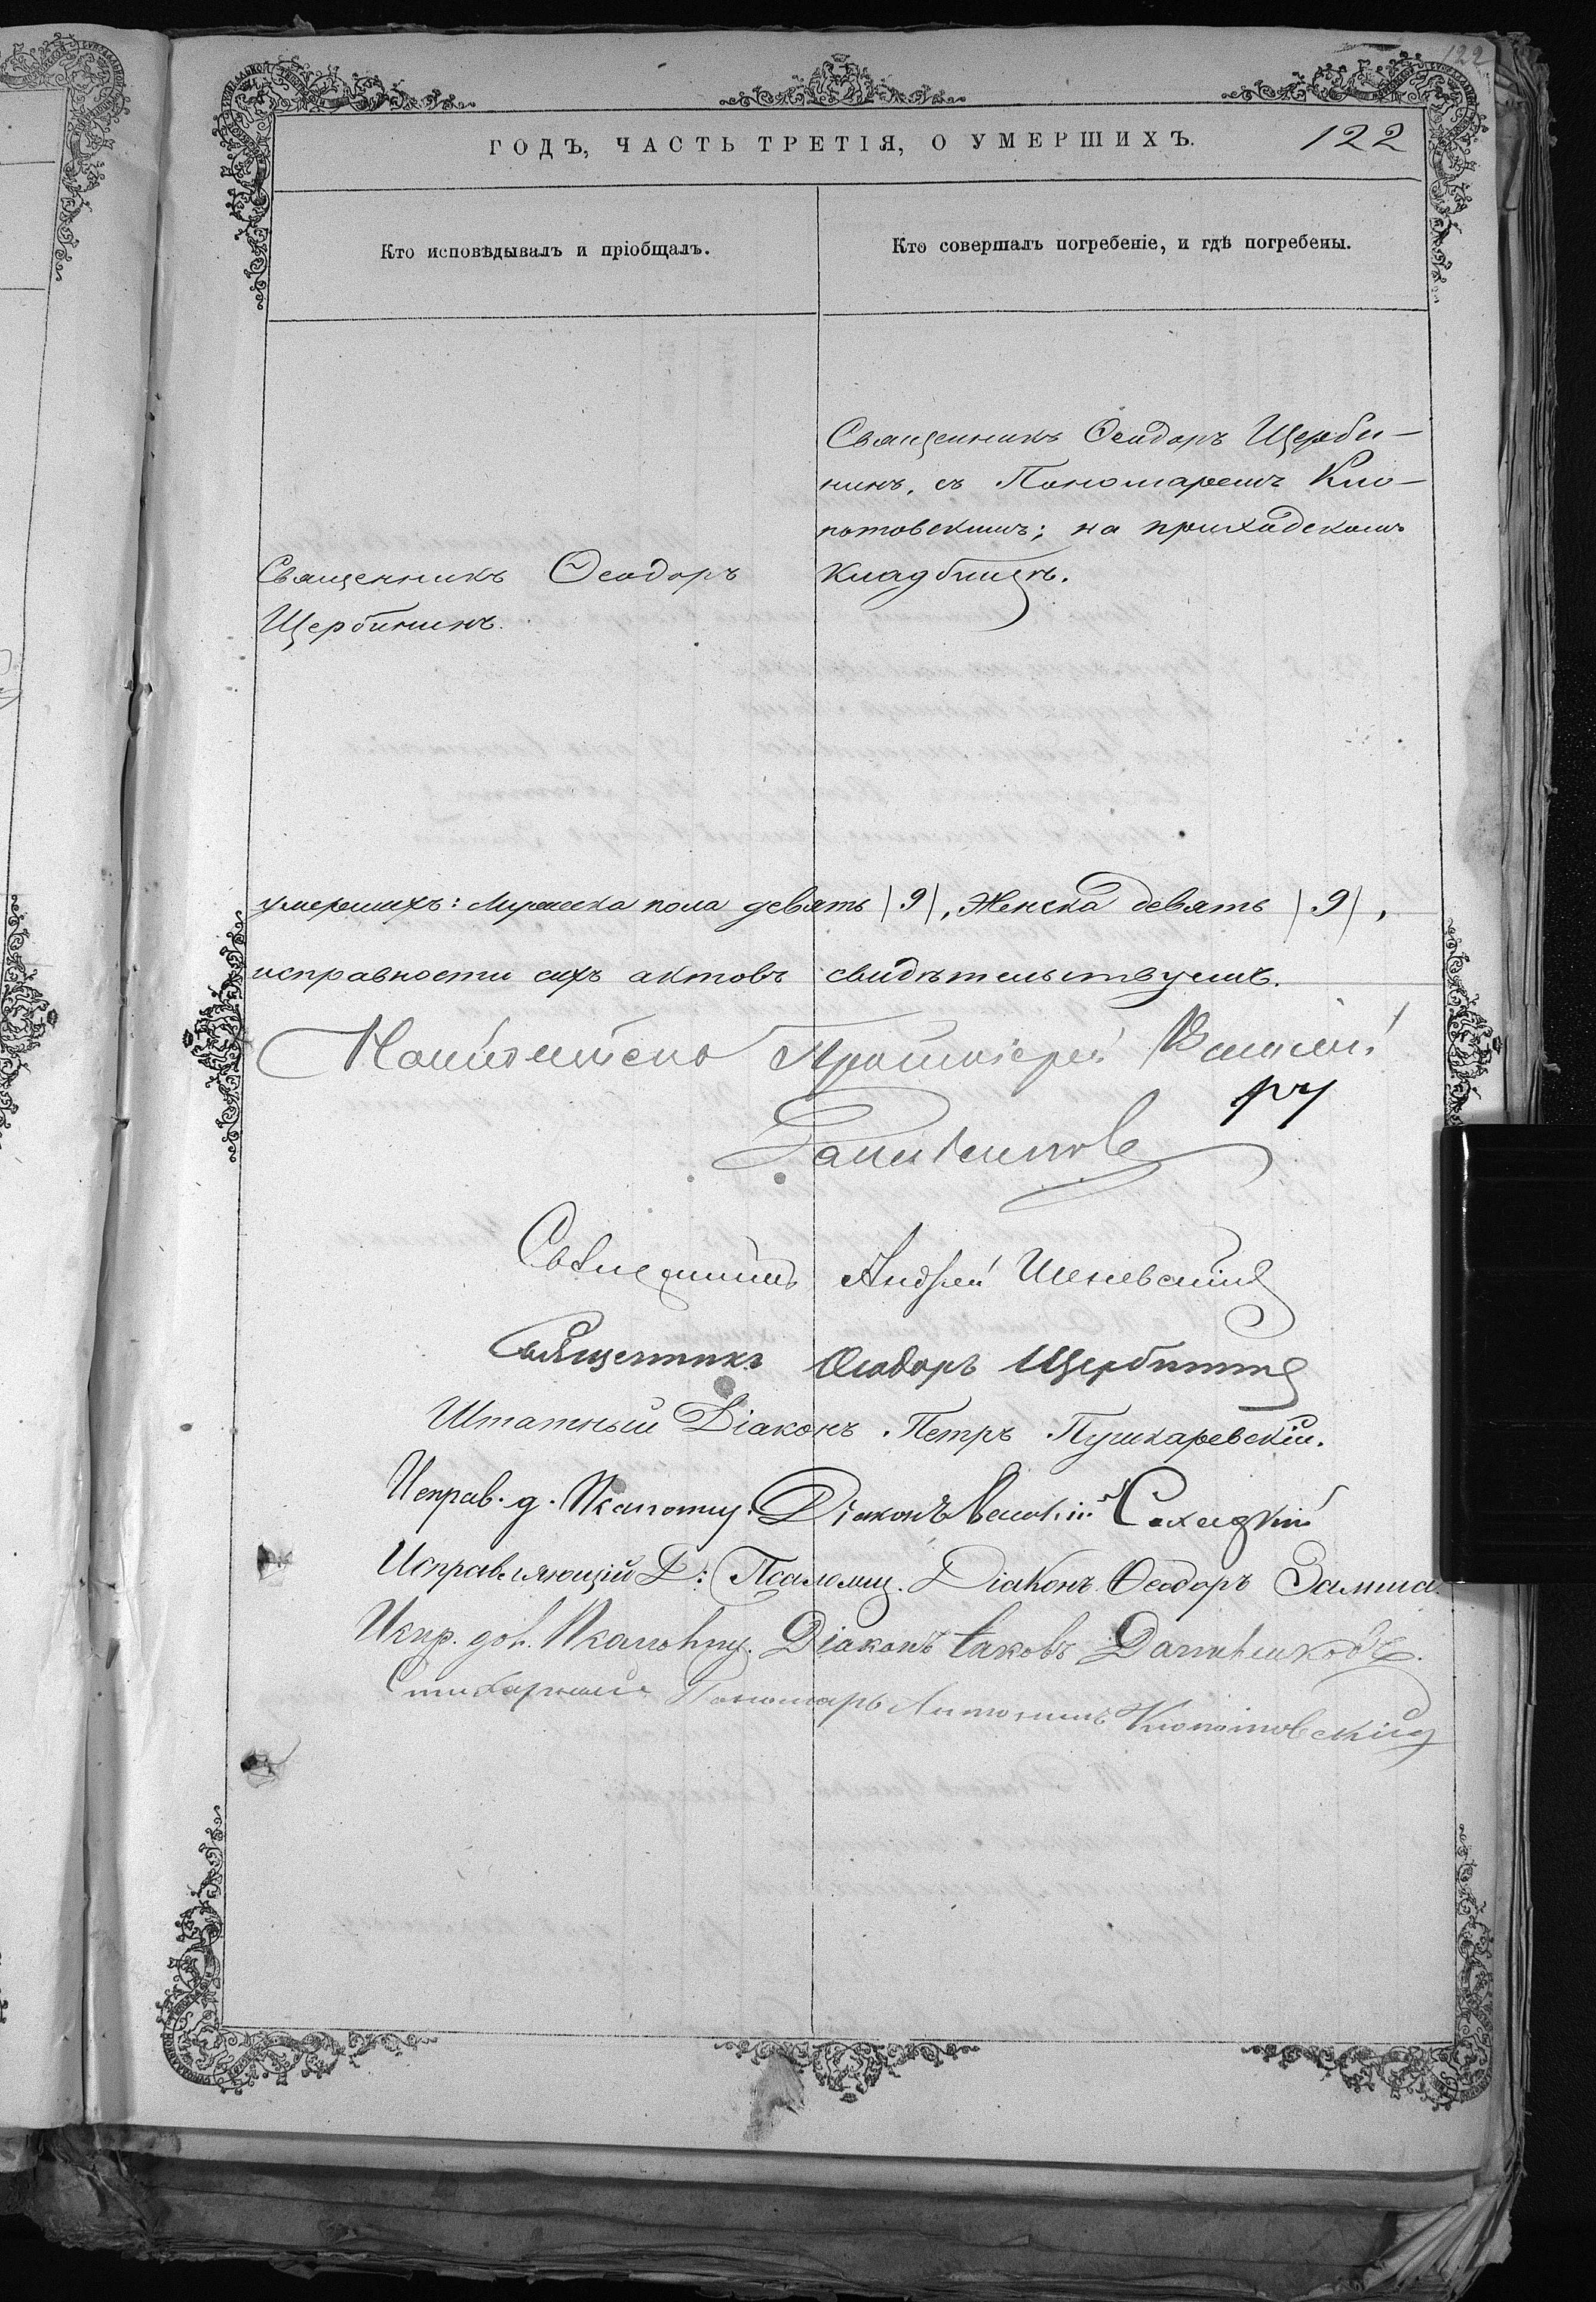 122
ГОДЪ, ЧАСТЬ ТРЕТІЯ, О УМЕРШИХЪ.
122
Кто исповѣдывалъ и пріобщалъ.
Кто совершалъ погребеніе, и гдѣ погребены.
Священникъ Ѳеодоръ
Щербининъ.
Священникъ Ѳеодоръ Щерби-
нинъ, съ Пономаремъ Кло-
потовскимъ; на приходскомъ
кладбищѣ.
умершихъ: Мужеска пола девять (9), Женска девять (9),
исправности сихъ актовъ свидѣтельствуемъ.
Протоіерей Василій
Данилевскій
Священникъ Андрей
Священникъ Ѳеодоръ Щербининъ
Штатный Діаконъ Петръ Пушкаревскій.
Исправ. д. Псаломщ. Діаконъ
Исправляющій Д: Псаломщ. Діаконъ Ѳеодоръ
Испр. дол. Псаломщ. Діаконъ Іаковъ
Стихарный Пономарь Антонинъ Клопотовскій